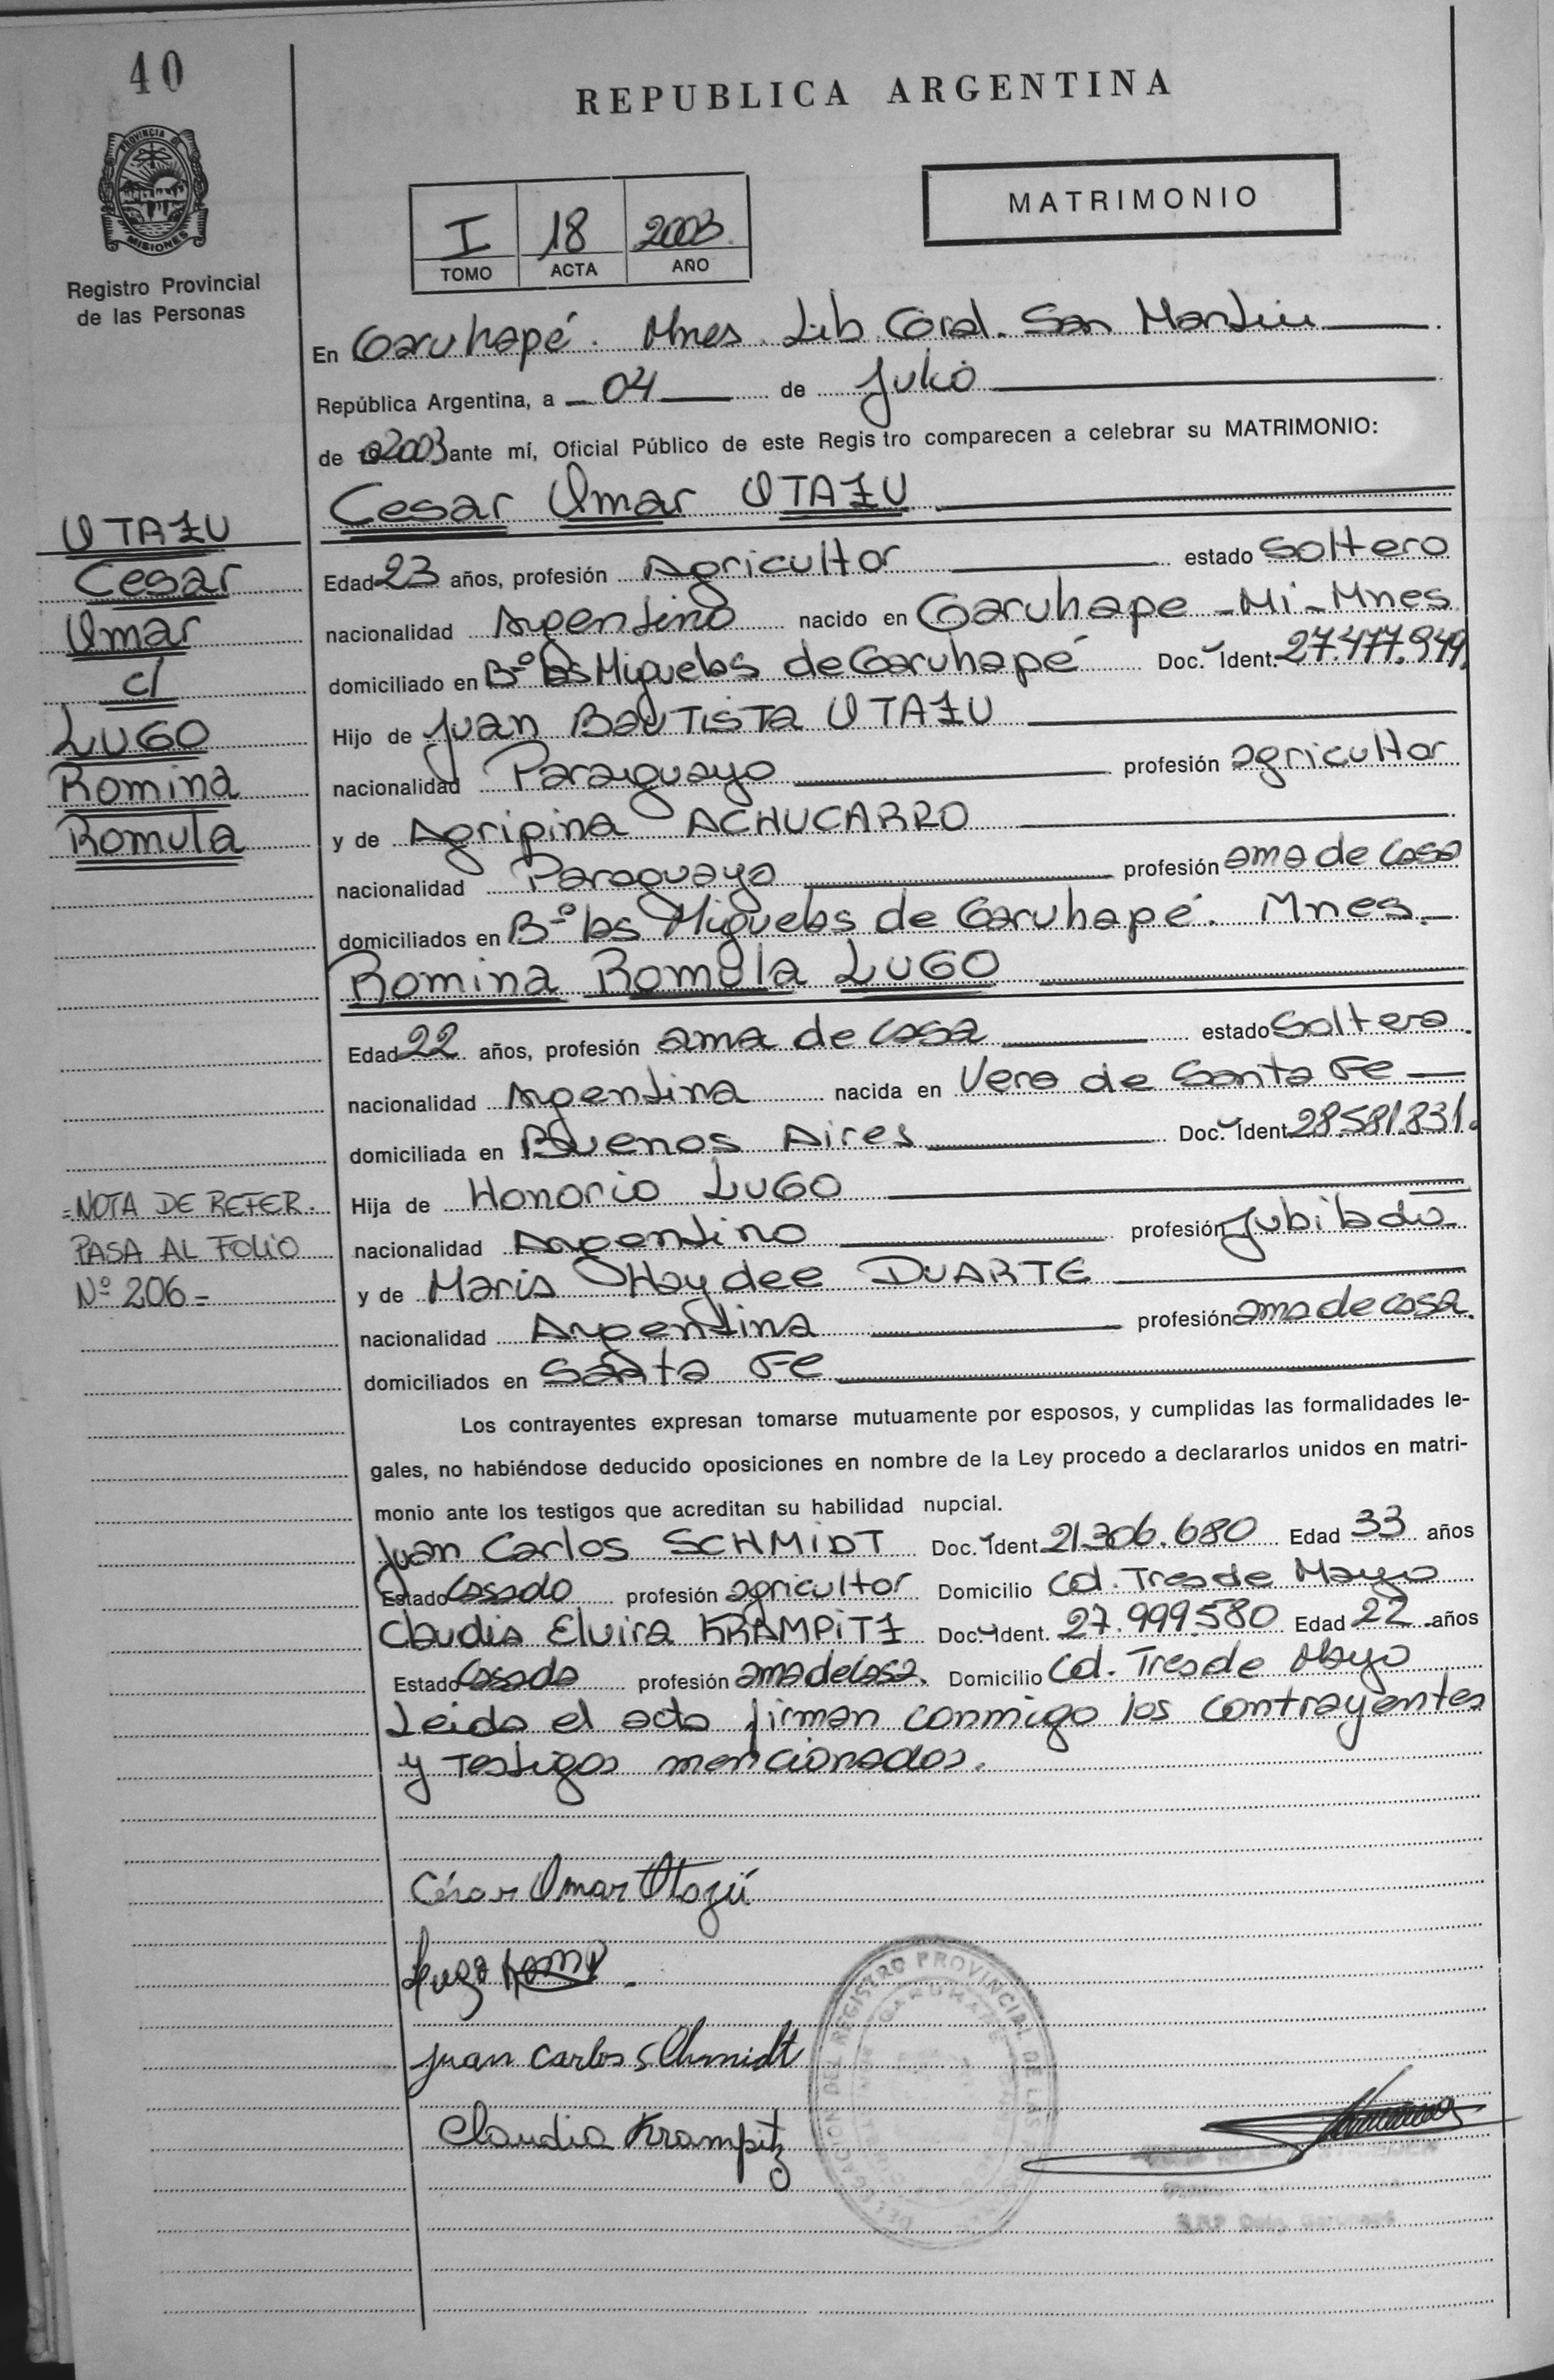 40
REPUBLICA ARGENTINA
PROVINCIA DE
MISIONES
Registro Provincial
de las Personas
I 18 2003
TOMO ACTA AÑO
MATRIMONIO
En Garuhapé. Mnes. Lib. Gral. San Martin
República Argentina, a 04 de Julio
de 2003 ante mí, Oficial Público de este Registro comparecen a celebrar su MATRIMONIO:
Cesar Omar OTAZU
Edad 23 años, profesión Agricultor estado Soltero
nacionalidad Argentino nacido en Garuhape - Mi - Mnes
domiciliado en Bº los Miguelos de Garuhapé Doc. Ident. 27.477.949.
Hijo de Juan BAUTISTA OTAZU
nacionalidad Paraguayo profesión agricultor
y de Agripina ACHUCARRO
nacionalidad Paraguaya profesión ama de casa
domiciliados en Bº los Miguelos de Garuhapé. Mnes.
Romina Romula LUGO
Edad 22 años, profesión ama de casa estado Soltera.
nacionalidad Argentina nacida en Vera de Santa Fe
domiciliada en Buenos Aires Doc. Ident. 28.581.831.
Hija de Honorio LUGO
nacionalidad Argentino profesión Jubilado
y de Maria Haydee DUARTE
nacionalidad Argentina profesión ama de casa.
domiciliados en Santa Fe
Los contrayentes expresan tomarse mutuamente por esposos, y cumplidas las formalidades le-
gales, no habiéndose deducido oposiciones en nombre de la Ley procedo a declararlos unidos en matri-
monio ante los testigos que acreditan su habilidad nupcial.
Juan Carlos SCHMIDT Doc. Ident. 21.306.680 Edad 33 años
Estado Casado profesión agricultor Domicilio Col. Tres de Mayo
Claudia Elvira KRAMPITZ Doc. Ident. 27.999.580 Edad 22 años
Estado Casada profesión ama de casa. Domicilio Col. Tres de Mayo
Leida el acta firman conmigo los contrayentes
y testigos mencionados.
OTAZU
Cesar
Omar
c/
LUGO
Romina
Romula
=NOTA DE REFER.
PASA AL FOLIO
Nº 206=
César Omar Otazú
Lugo Romi
Juan Carlos Schmidt
Claudia Krampitz
DELEGACION DEL REGISTRO PROVINCIAL DE LAS
GARUHAPE